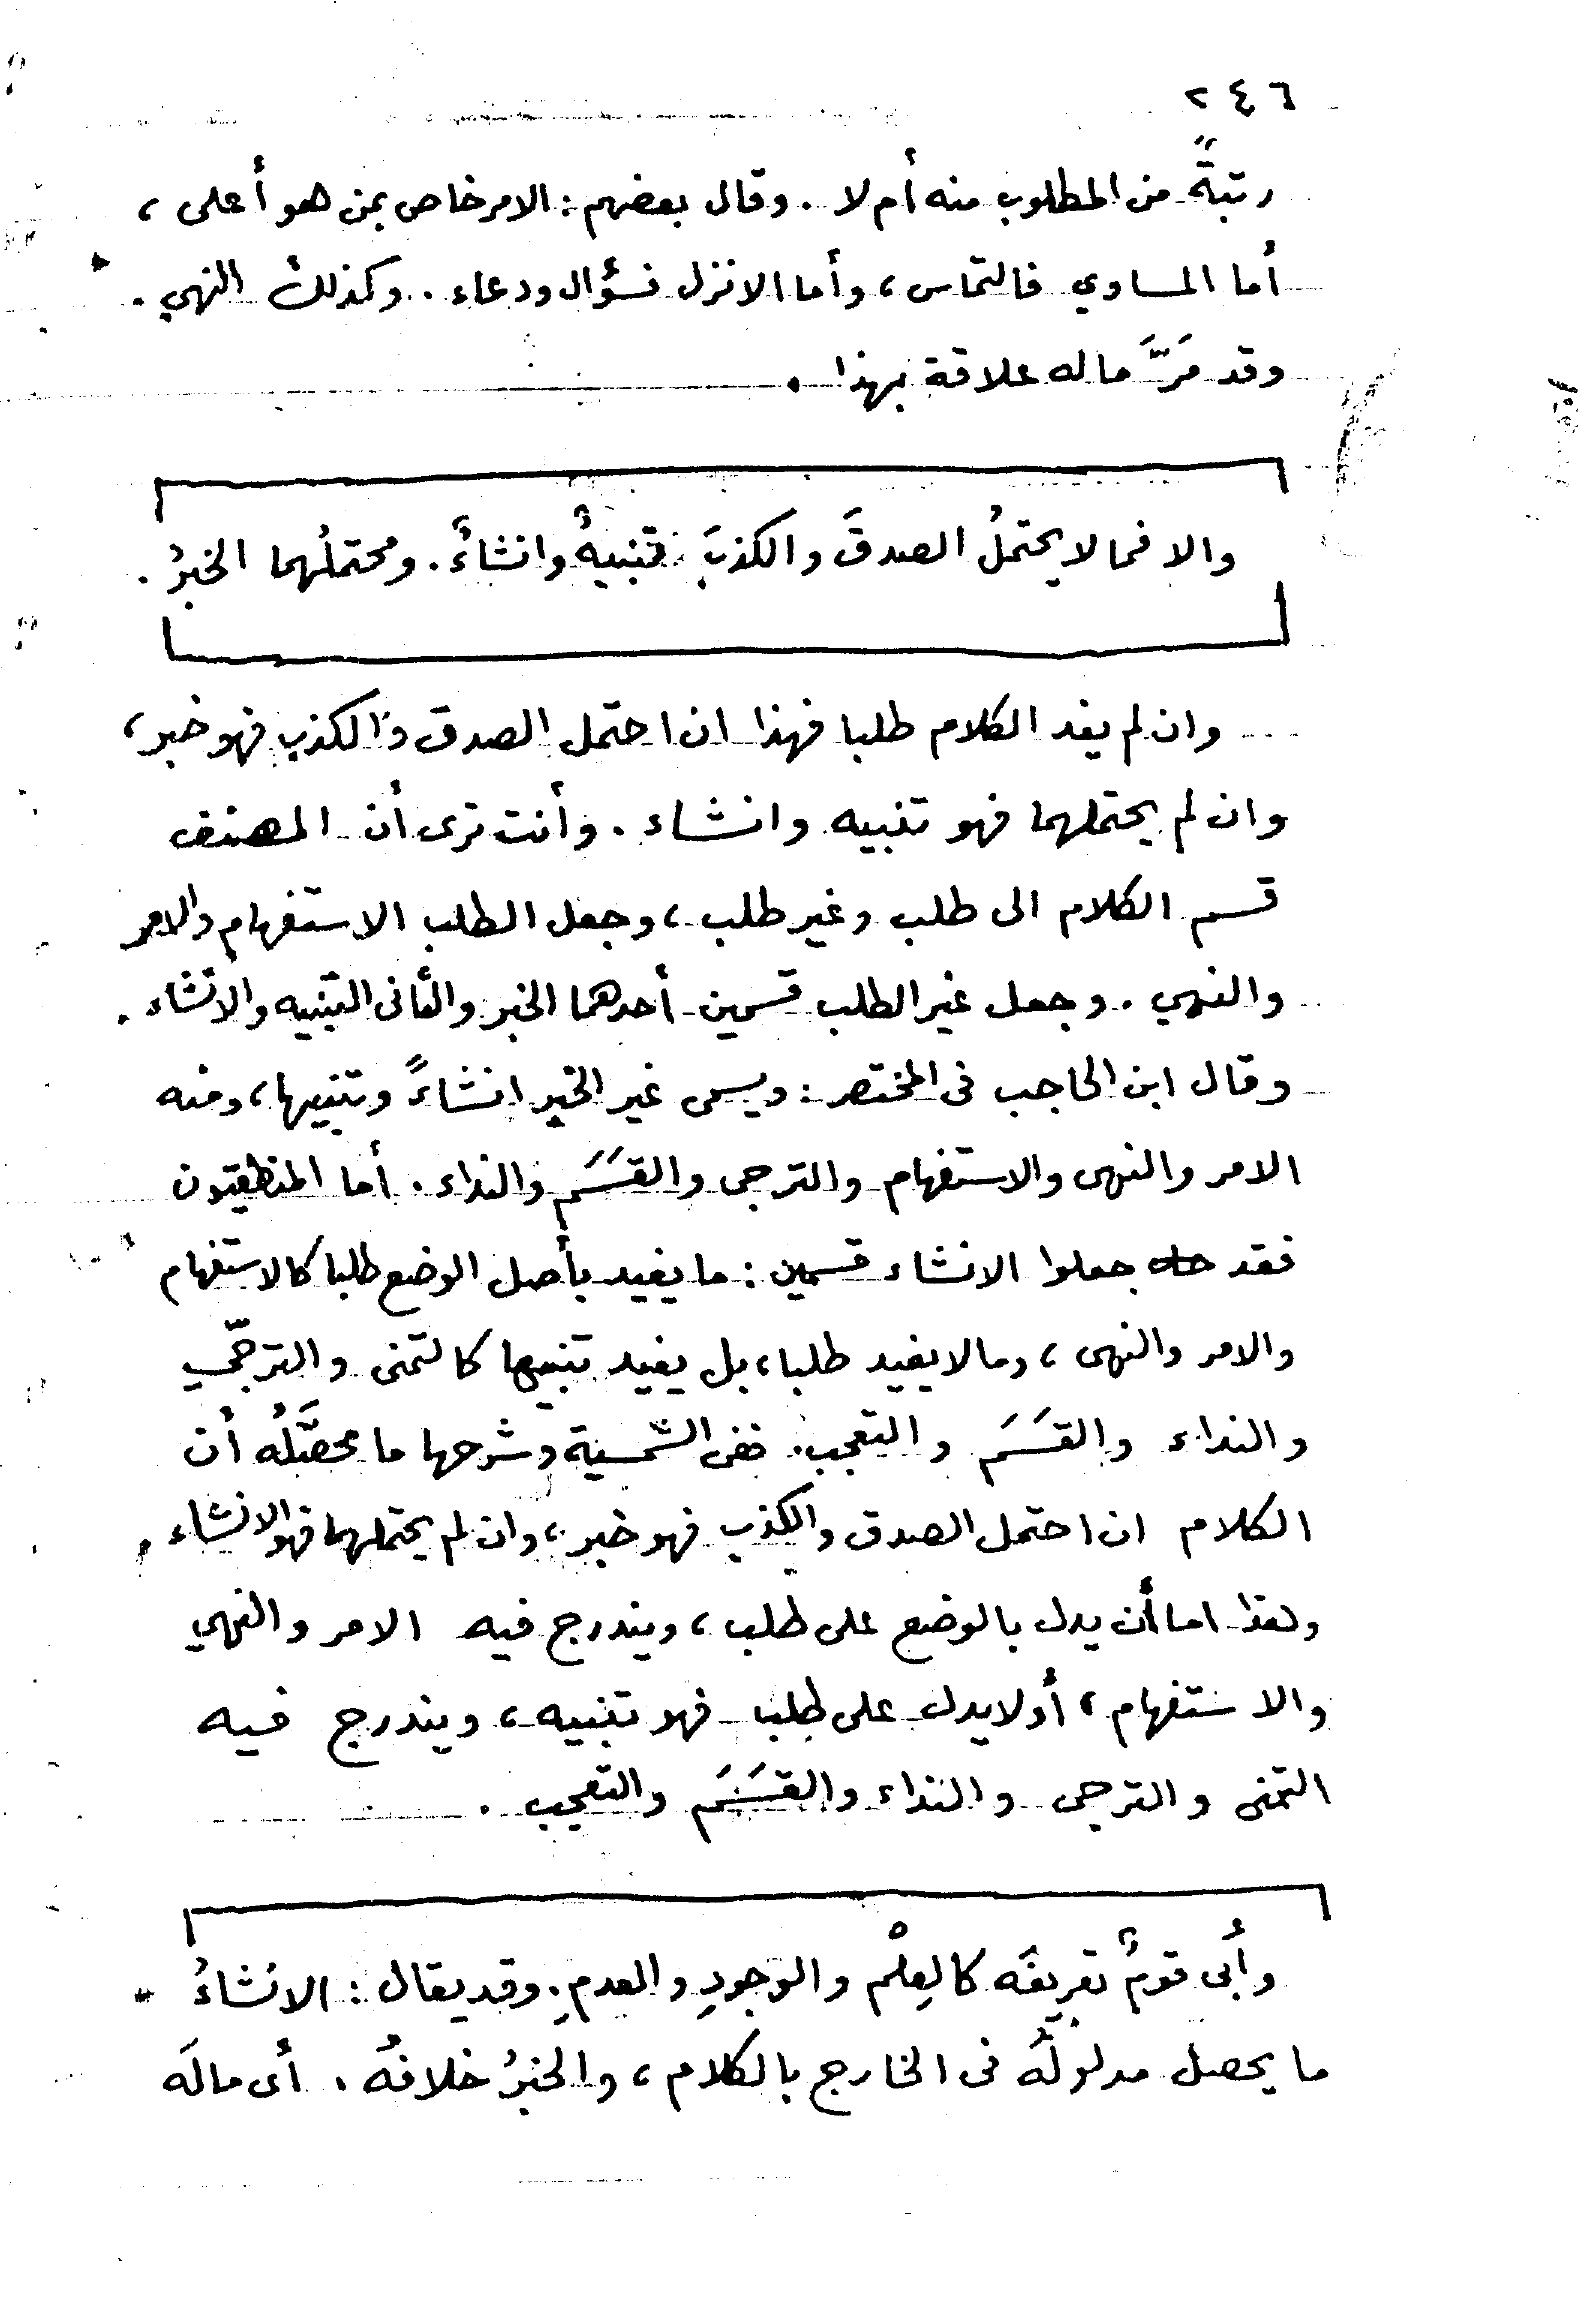 ٢٤٦
رتبةً من المطلوب منه أم لا . وقال بعضهم : الامر خاص بمن هو أعلى ،
أما المساوي فالتماس ، وأما الانزل فسؤال ودعاء . وكذلك النهي .
وقد مَرَّ ما له علاقة بهذا .
والا فما لا يحتملُ الصدقَ والكذبَ تنبيهٌ وانشاءٌ . ومحتملُهما الخبرُ .
وان لم يفد الكلام طلبا فهذا ان احتمل الصدق والكذب فهو خبر ،
وان لم يحتملهما فهو تنبيه وانشاء . وأنت ترى أن المصنف
قسم الكلام الى طلب وغير طلب ، وجعل الطلب الاستفهام والامر
والنهي . وجعل غير الطلب قسمين أحدهما الخبر والثانى التنبيه والانشاء .
وقال ابن الحاجب فى المختصر : ويسمى غير الخبر انشاءً وتنبيها ، ومنه
الامر والنهى والاستفهام والترجى والقَسَم والنداء . أما المنطقيون
فقد جعلوا الانشاء قسمين : ما يفيد بأصل الوضع طلبا كالاستفهام
والامر والنهى ، وما لا يفيد طلبا ، بل يفيد تنبيها كالتمنى والترجّي
والنداء والقَسَم والتعجب . ففى الشمسية وشرحها ما محصَّلُه أن
الكلام ان احتمل الصدق والكذب فهو خبر ، وان لم يحتملهما فهو الانشاء ،
وهذا اما أن يدل بالوضع على طلب ، ويندرج فيه الامر والنهي
والاستفهام ، أو لا يدل على طلب فهو تنبيه ، ويندرج فيه
التمنى والترجى والنداء والقَسَم والتعجب .
وأبى قومٌ تعريفَه كالعِلْم والوجودِ والعدمِ . وقد يقال : الانشاءُ
ما يحصل مدلولُه فى الخارج بالكلام ، والخبرُ خلافُه . أى مالَه